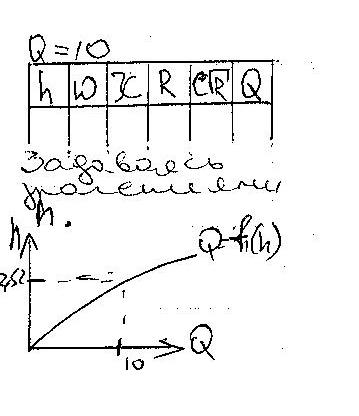 Q = 10
h ω χ R C√R Q
Задаваясь
значениями
h.
h
Q=f(h)
10
Q